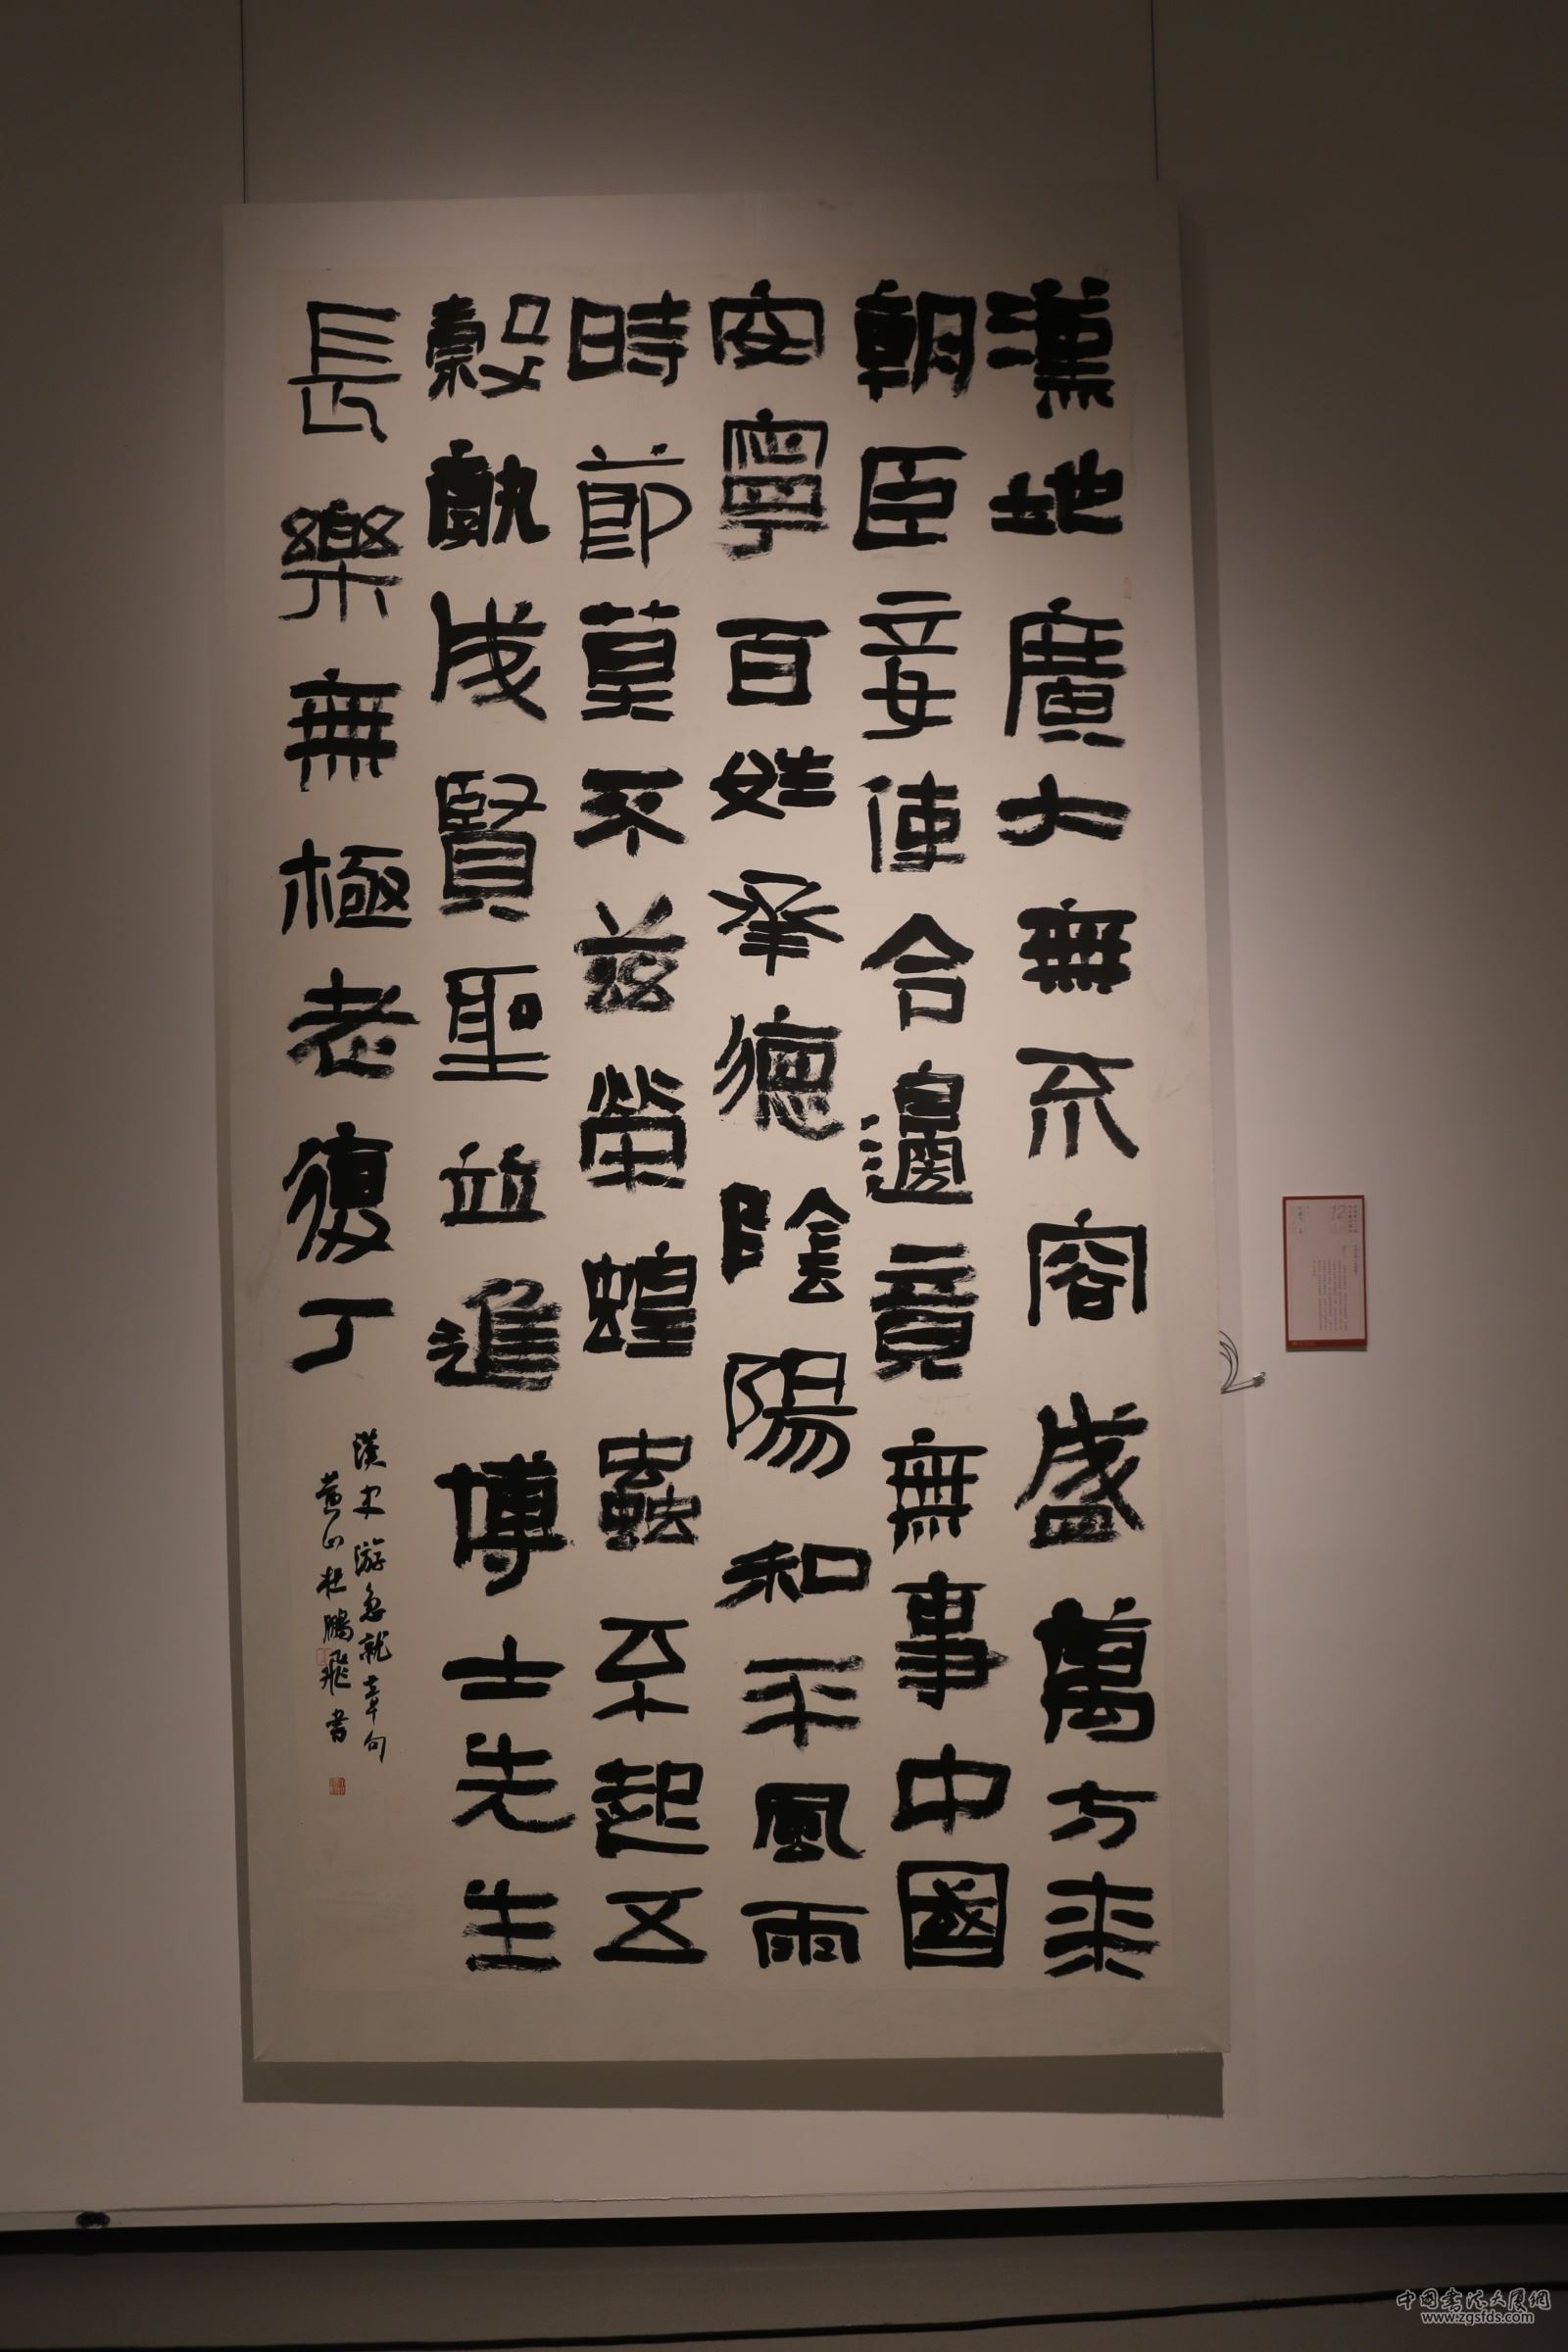 漢地廣大無不容盛萬方來
朝臣妾使合邊竟無事中國
安寧百姓承德陰陽和平風雨
時節莫不茲榮蝗蟲不起五
穀孰成賢聖並進博士先生
長樂無極老復丁
漢史游急就章句
黄山杜鵬飛書
12
中国書法大展網
www.zgsfds.com